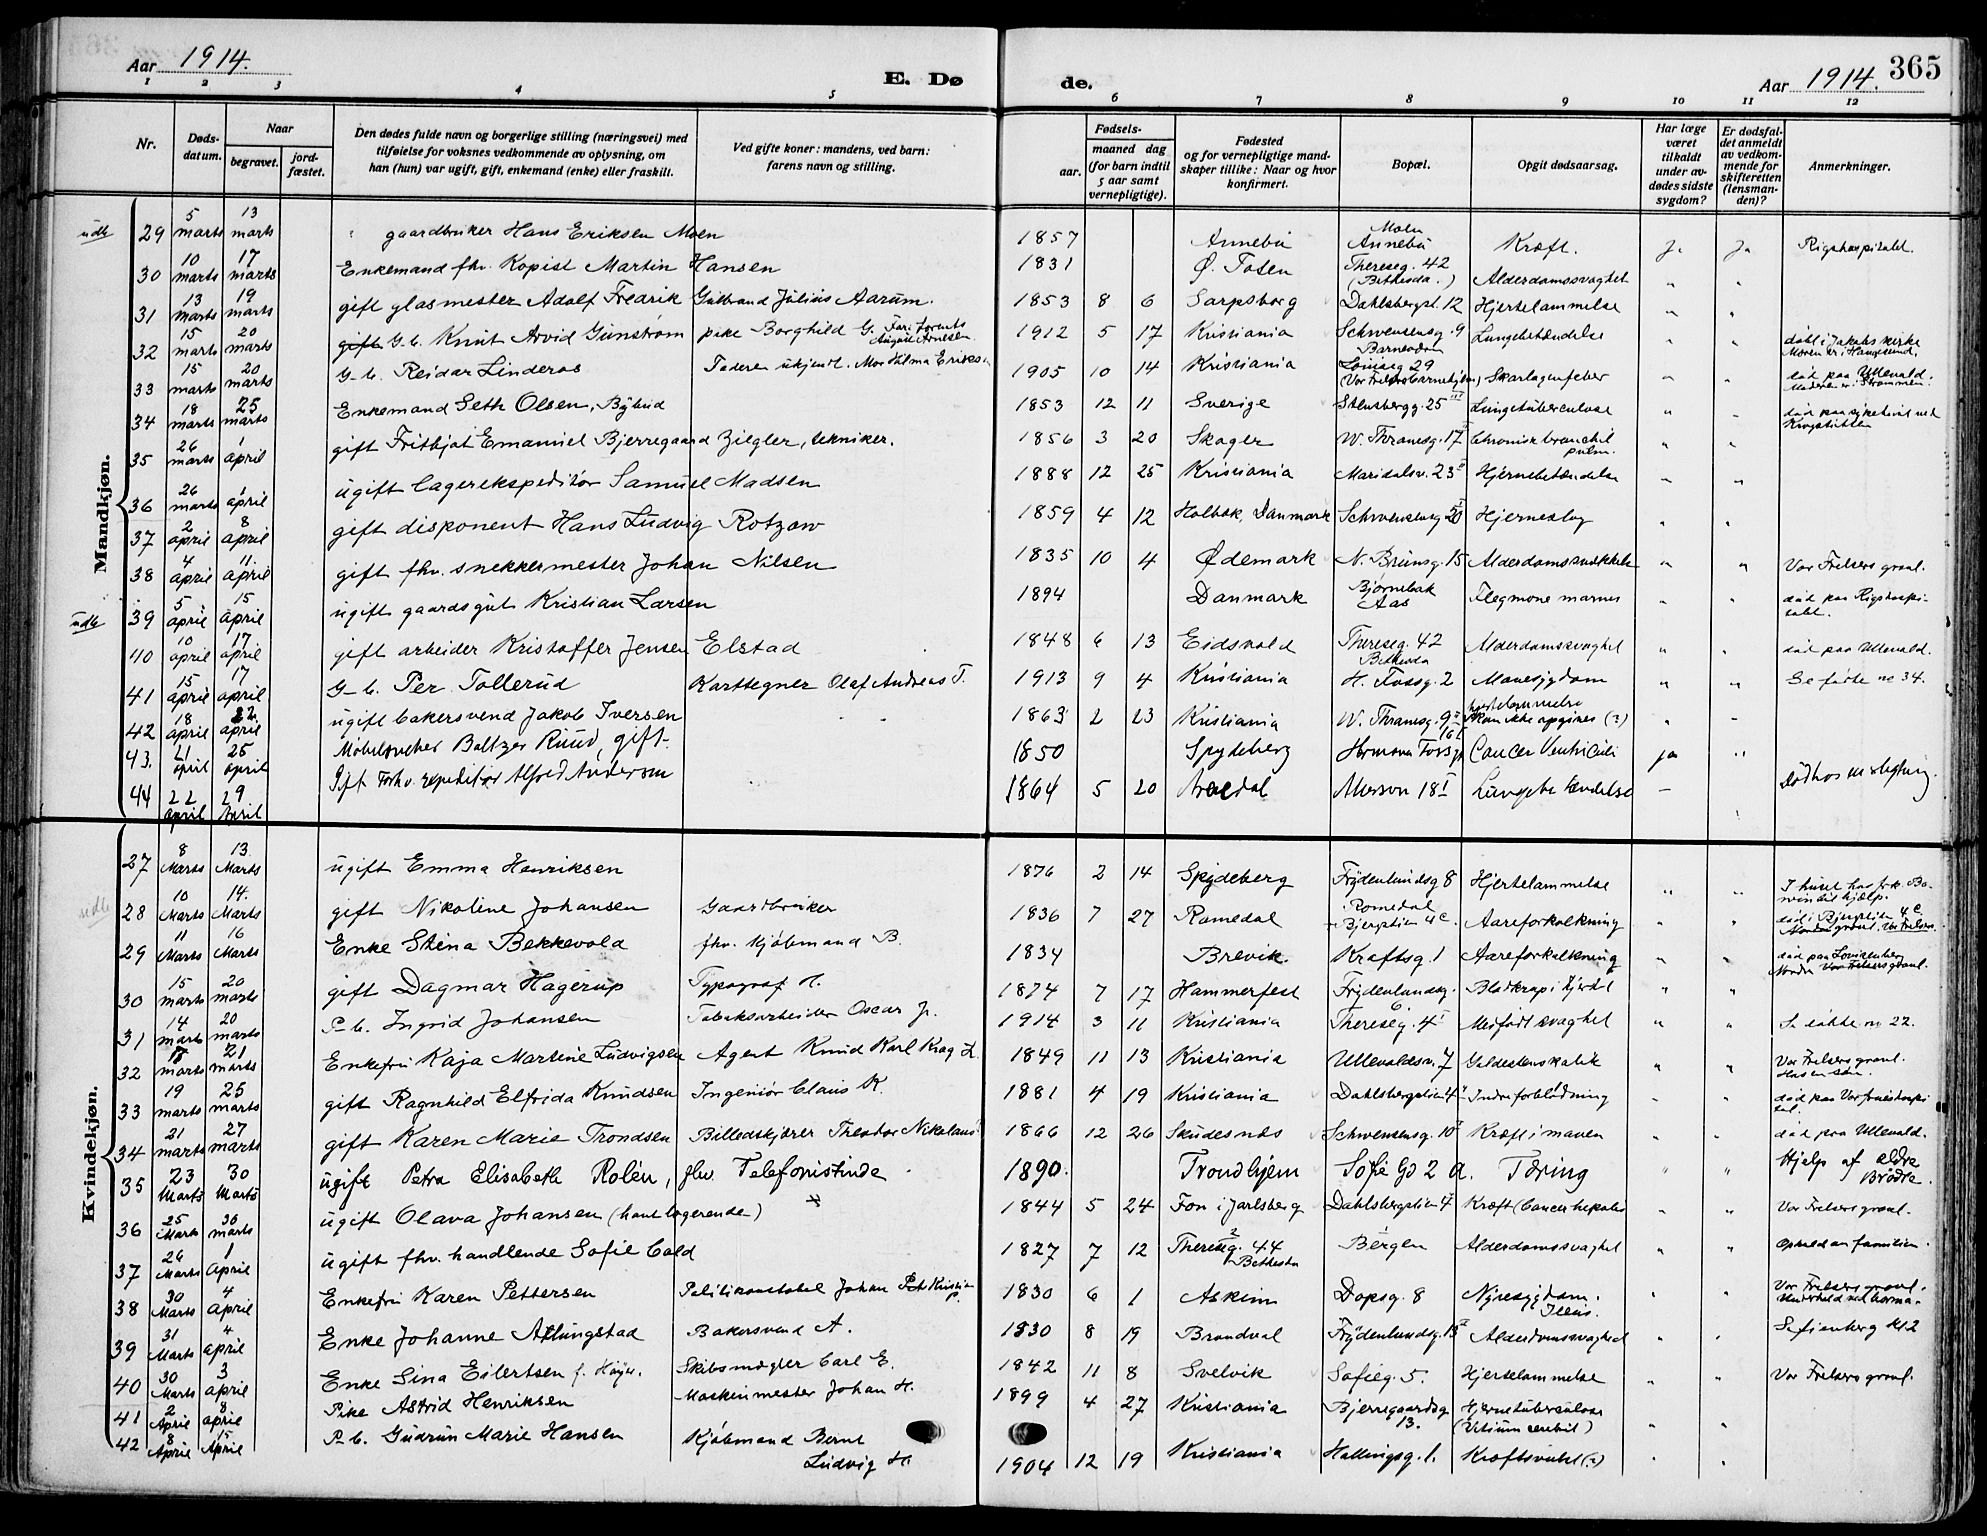 Aar 1914.
E. Dø
de.
Aar 1914.
365
1 2 3 4 5 6 7 8 9 10 11 12
Nr.
Døds-datum.
Naar
begravet.
jord-fæstet.
Den dødes fulde navn og borgerlige stilling (næringsvei) med
tilføielse for voksnes vedkommende av oplysning, om
han (hun) var ugift, gift, enkemand (enke) eller fraskilt.
Ved gifte koner: mandens, ved barn:
farens navn og stilling.
Fødsels-
aar.
maaned dag
(for barn indtil
5 aar samt
vernepligtige).
Fødested
og for vernepligtige mand-
skaper tillike: Naar og hvor
konfirmert.
Bopæl.
Opgit dødsaarsag.
Har læge
været
tilkaldt
under av-
dødes sidste
sygdom?
Er dødsfal-
det anmeldt
av vedkom-
mende for
skifteretten
(lensman-
den)?
Anmerkninger.
Mandkjøn.
udb 29 5 marts 13 marts gaardbruker Hans Eriksen Moen 1857 Annebu Moen Annebu Kræft. Ja Ja Rigshospitalet.
30 10 marts 17 marts Enkemand fhv. Kopist Martin Hansen 1831 Ø. Toten Thereseg. 42 (Bethesda.) Alderdomssvaghet " "
31 13 marts 19 marts gift glasmester Adolf Fredrik Gulbrand Julius Aarum. 1853 8 6 Sarpsborg Dahlsbergst. 12 Hjertelammelse " "
32 15 marts 20 marts gift G.b. Knut Arvid Gunstrøm pike Borghild G. August Arnesen 1912 5 17 Kristiania Schwensensg. 9 Barnehjem Lungebetændelse " " døbt i Jakobs kirke Moren er i Haugesund.
33 15 marts 20 marts G.b. Reidar Linderos Faderen ukjendt. Mor Hilma Eriksen 1905 10 14 Kristiania 29 (Vor Frelsers barnehjem) Skarlagenfeber " " død paa Ullevald. Moderen er i Strømmen.
34 18 marts 25 marts Enkemand Seth Olsen, Bybud 1853 12 11 Sverige Stensbergg. 25 III Lungetuberculose " " død paa sykehuset ved Krogstøtten
35 26 marts 1 april gift Frithjof Emanuel Bjerregaard Ziegler, tekniker. 1856 3 20 Skager W. Thranesg. 17 I Chronisk bronchit pulm. " "
36 26 marts 1 april ugift lagerekspeditør Samuel Madsen 1888 12 25 Kristiania Maridalsv. 23 II Hjernebetændelse " "
37 2 april 8 april gift disponent Hans Ludvig Rotzow 1859 4 12 Holbæk, Danmark Schwensensg. Hjerneslag " "
38 4 april 11 april gift fhv. snekkermester Johan Nilsen 1835 10 4 Ødemark N. Brunsg. 15 Alderdomssvækkelse " " Vor Frelsers gravl.
udb 39 5 april 15 april ugift gaardsgut Kristian Larsen 1894 Danmark Bjørnebæk Aas Flegmone manus " " død paa Rigshospitalet.
40 10 april 17 april gift arbeider Kristoffer Jensen Elstad 1848 6 13 Eidsvold Thereseg. 42 Bethesda Alderdomssvaghet " " død paa Ullevald.
41 15 april 17 april G.b. Per Tollerud Karttegner Olaf Andreas T. 1913 9 4 Kristiania H. Fossg. 2 Mavesygdom " " Se fødte no 34.
42 18 april 22 april ugift bakersvend Jakob Iversen 1863 2 23 Kristiania W. Thranesg. 9 II Hjertelammelse kan ikke opgives (?) " "
43. 21 april 25 april Møbelsnekker Baltzer Ruud, gift. 1850 Spydeberg Hermann Fossgt 16 I Cancer Ventriculi ja "
44 22 april 29 April Gift Forhv. expeditør Alfred Andersen 1864 5 20 Arendal Akersvn 18 I Lungebetændelse — Død hos
Kvindekjøn.
27 8 Marts 13 Marts ugift Emma Henriksen 1876 2 14 Spydeberg Frydenlundsg 8 Hjertelammelse " " I huset hos
udb 28 10 Marts 14 Marts gift Nikoline Johansen Gaardbruker 1836 7 27 Romedal Romedal Bjergstien 4 C. Aareforkalkning " " død i Bjergstien 4 C. Vor Frelsers.
29 11 Marts 16 Marts Enke Stina Bekkevold fhv. Kjøbmand B. 1834 Brevik. Kraftsg. 1 Aareforkalkning " " død paa Lovisenberg Nordre Vor Frelsers gravl.
30 15 marts 20 marts gift Dagmar Hagerup Typograf H. 1874 7 17 Hammerfest Frydenlundsg. 6 Blodprop i hjertet " "
31 14 marts 20 marts P.b. Ingrid Johansen Tobaksarbeider Oscar J. 1914 3 11 Kristiania Thereseg. 4 I Medfødt svaghet " " Se døbte no 22.
32 marts 21 marts Enkefru Kaja Martine Ludvigsen Agent Knud Karl Krag L. 1849 11 13 Kristiania Ullevaldsv. 7 Galdestenskolik " " Vor Frelsers gravl.
33 19 marts 25 marts gift Ragnhild Elfrida Knudsen Ingeniør Claus K. 1881 4 19 Kristiania Dahlsbergstien 4 II Indre forblødning " " død paa Vor Frues hospital.
34 21 marts 27 marts gift Karen Marie Trondsen Billedskjærer Theodor Nikolaus T. 1866 12 26 Skudesnæs Schwensensg. 10 I Kræft i maven " " død paa Ullevald.
35 23 Marts 30 Marts ugift Petra Elisabeth Rolén, fhv. Telefonistinde 1890. Trondhjem Sofie Gd 2 a. Tæring " " Hjelp af ældre Brødre.
36 25 Marts 30 marts ugift Olava Johansen (haandlagerende) 1844 5 24 Fon i Jarlsberg Dahlsbergstien 4 I Kræft (Cancer hepatis) " " Vor Frelsers gravl.
37 26 Marts 1 April ugift fhv. handlende Sofie Cold 1827 7 12 Thereseg. 44 Bethesda Bergen Alderdomssvaghet " " Ophold av familien.
38 30 Marts 4 april Enkefru Karen Pettersen Politikonstabel Johan Peter Kristian P. 1830 6 1 Askim Dopsg. 8 Nyresygdom. Ileus. " " Vor Frelsers gravl.
39 31 Marts 4 april Enke Johanne Aklungstad Bakersvend A. 1830 8 19 Brandval Frydenlundsg. 13 II Alderdomssvaghed " " Sofienberg kl 2
40 30 Marts 3 april Enke Lina Eilertsen f. Høyer. Skibsmægler Carl E. 1842 11 8 Svelvik Sofieg. 5. Hjertelammelse " " Vor Frelsers gravl.
41 2 April 8 april Pike Astrid Henriksen Maskinmester Johan H. 1899 4 27 Kristiania Bjerregaardsg 13. Hjernetuberculose (Vitium cerebri) " "
42 8 April 15 April P.b. Gudrun Marie Hansen Kjøbmand Bernt Ludvig H. 1904 12 19 Kristiania Hallingsg. 1. Kræftsvulst (?) " "